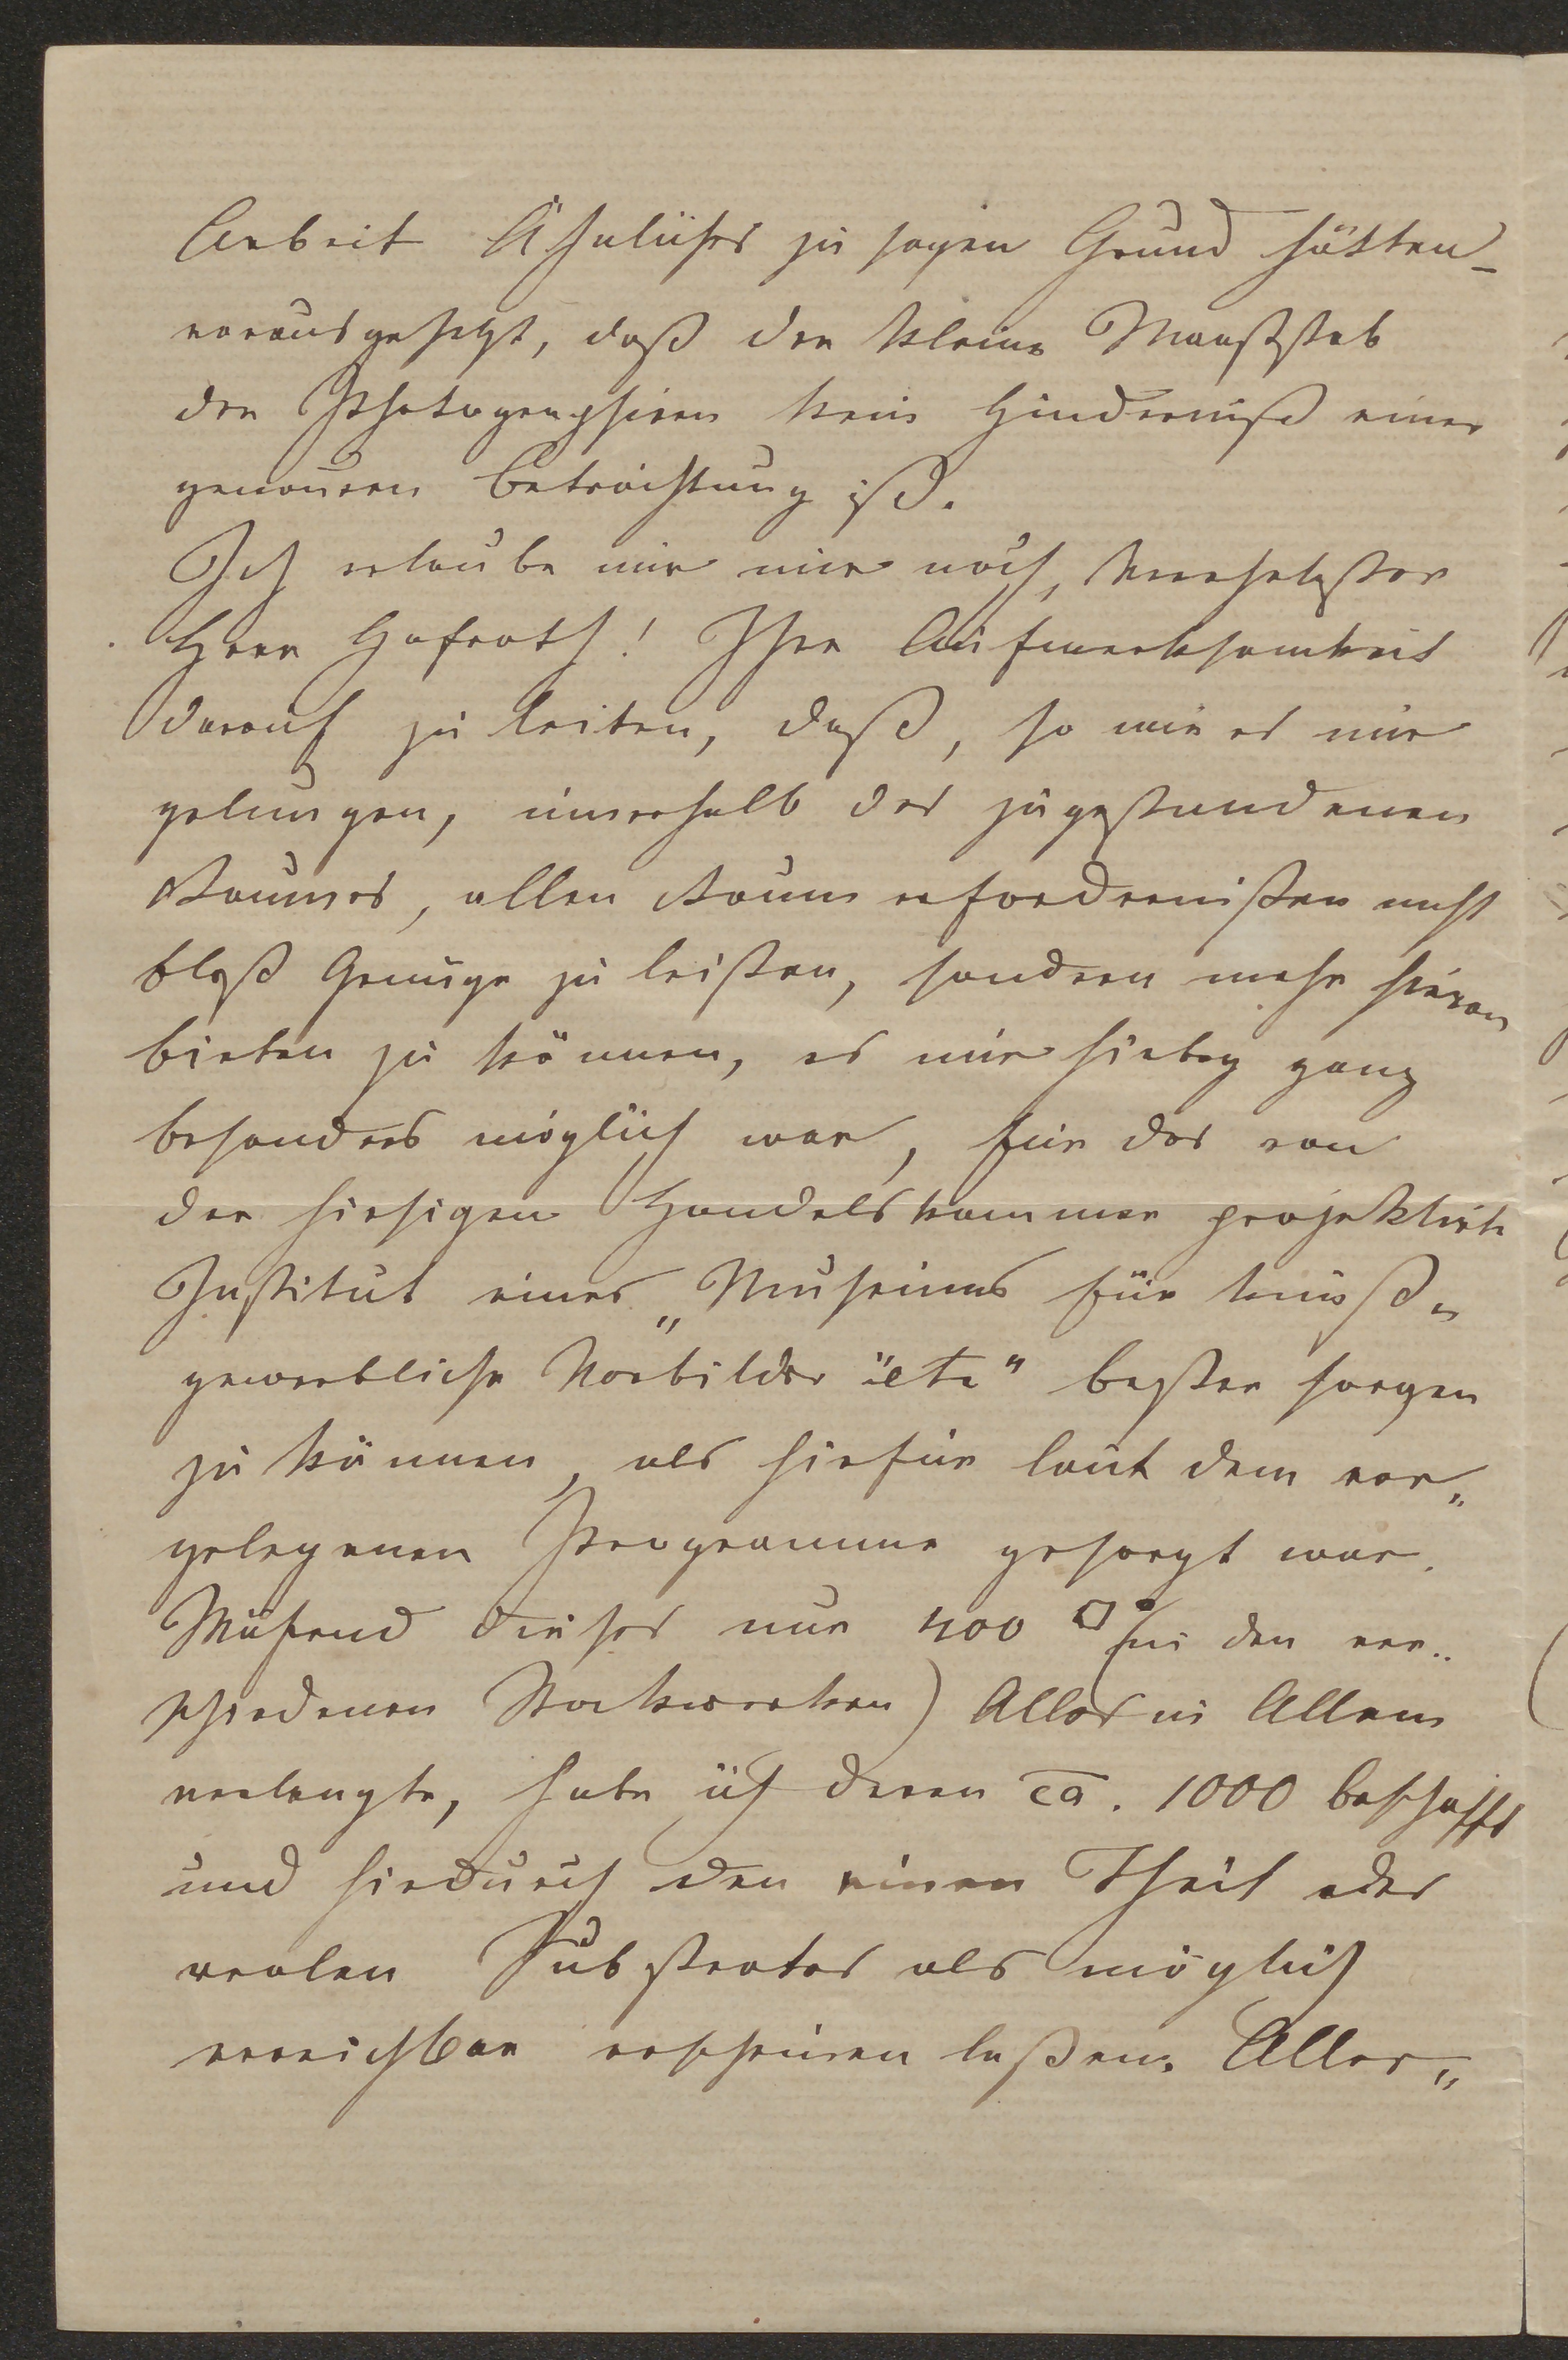 Arbeit Ähnliches zu sagen Grund hätten_
vorausgesetzt, daß der kleine Maaßstab
der Photographieen kein Hinderniß einer
genaueren Betrachtung ist.
Ich erlaube mir nur noch, Verehrtester
Herr Hofrath! Ihre Aufmerksamkeit
darauf zu leiten, daß, so wie es mir
gelungen, innerhalb des zugestandenen
Raumes, allen Raumerfordernissen nicht
bloß Genüge zu leisten, sondern mehr hievon
bieten zu können, es mir hiebey ganz
besonders möglich war, für das von
der hiesigen Handelskammer projektirte
Institut eines „Museums für kunst„
gewerbliche Vorbilder etc“ besser sorgen
zu können, als hiefür laut dem vor„
gelegenen Programme gesorgt war.
Während dieses nur 400 □° (in den ver„
schiedenen Stockwerken) Alles in Allem
verlangte, habe ich deren ca. 1000 beschafft
und hiedurch den einen Theil des
realen Substrates als möglich
erreichbar erscheinen lassen. Aller„